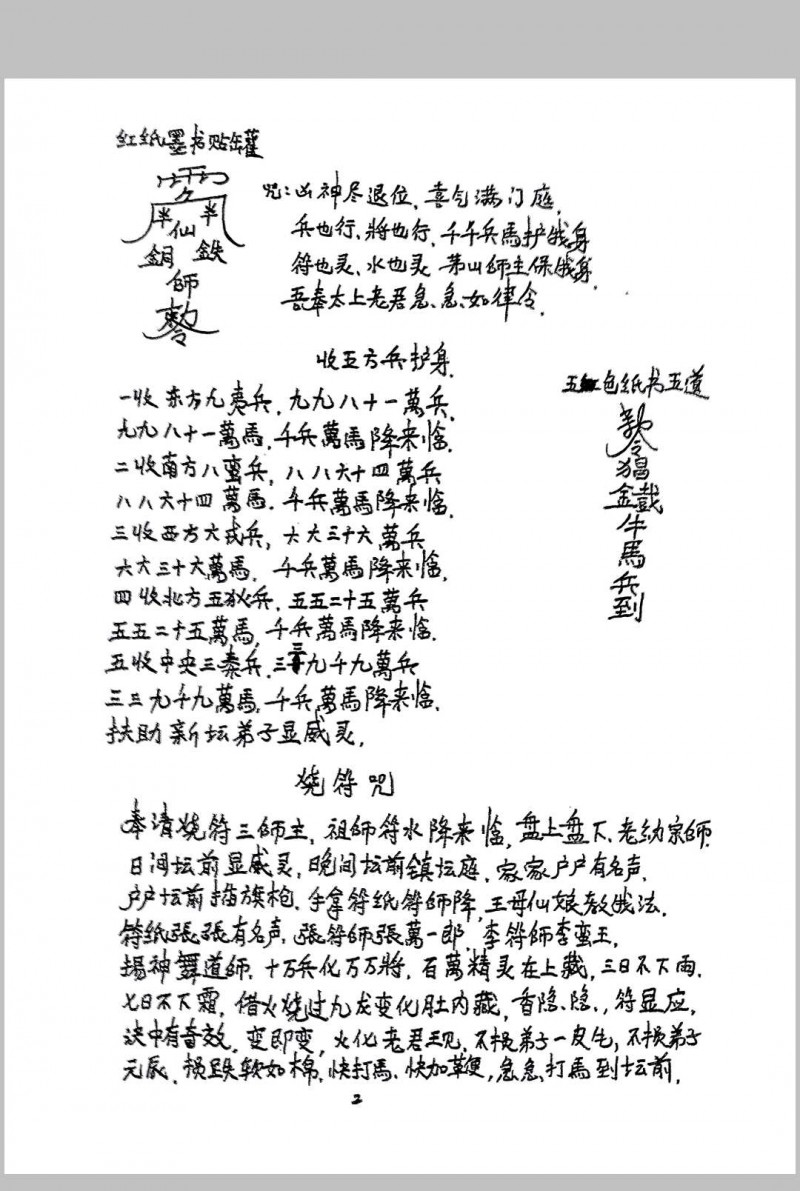 红纸墨书贴罐
半 仙 半
銅 鉄
師
敕令
咒:凶神尽退位,喜气满门庭,
兵也行、將也行,千千兵馬护俄身
符也灵、水也灵 茅山師主保俄身.
吾奉太上老君急、急、如律令.
收五方兵护身
一收东方九夷兵,九九八十一萬兵.
九九八十一萬馬,千兵萬馬降来临.
二收南方八蛮兵,八八六十四萬兵
八八六十四萬馬.千兵萬馬降来临.
三收西方六戎兵,六六三十六萬兵
六六三十六萬馬.千兵萬馬降来临.
四收北方五狄兵.五五二十五萬兵
五五二十五萬馬,千兵萬馬降来临.
五收中央三秦兵.三三九千九萬兵
三三九千九萬馬.千兵萬馬降来临.
扶助新坛弟子显威灵.
五色纸书五道
敕令猖
金戩牛馬兵到
烧符咒
奉请烧符三師主,祖師符水降来临,盘上盘下.老幼宗師.
日间坛前显威灵,晚间坛前镇坛庭.家家户户有名声.
户户坛前插旗枪.手拿符纸符師降,王母仙娘教俄法.
符纸張張有名声.張符師張萬一郎.李符師李蛮王.
揚神舞道師.十万兵化万万將,百萬精灵在上藏,三日不下雨.
七日不下霜,借火烧过九龙变化肚内藏,香隐、隐.,符显应,
決中有奇效,变即变,火化老君王见,不损弟子一皮毛,不损弟子
元辰.损跌软如棉,快打馬、快加鞭,急急、打馬到坛前.
2